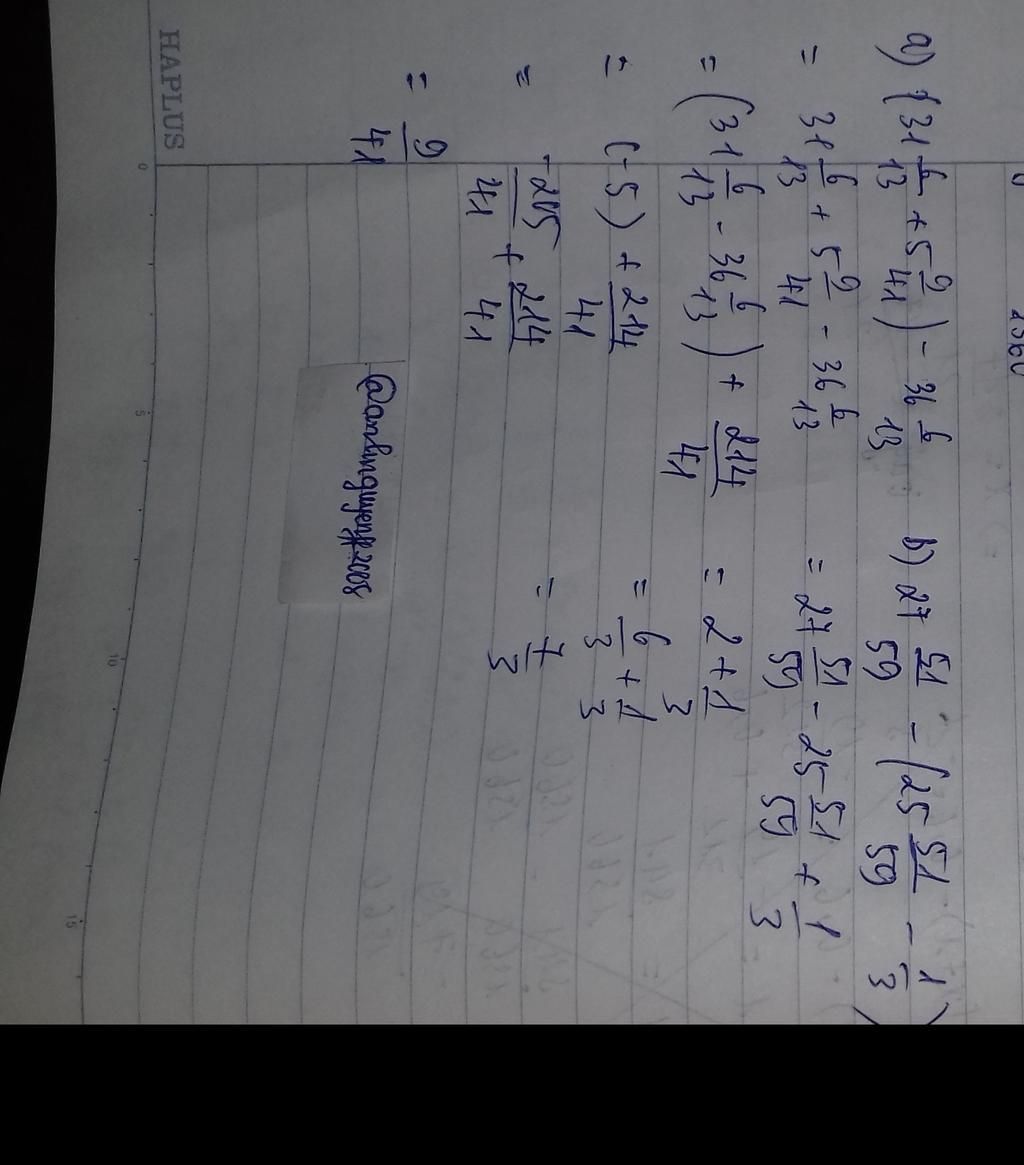 a) (31 6/13 + 5 9/41) - 36 6/13
= 31 6/13 + 5 9/41 - 36 6/13
= (31 6/13 - 36 6/13) + 214/41
= (-5) + 214/41
= -205/41 + 214/41
= 9/41
b) 27 51/59 - (25 51/59 - 1/3)
= 27 51/59 - 25 51/59 + 1/3
= 2 + 1/3
= 6/3 + 1/3
= 7/3
HAPLUS
0 5 10 15